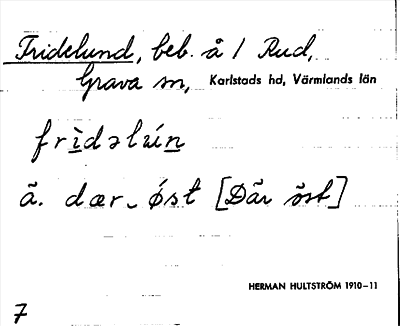 Fridelund, beb. å / Rud,
Grava sn, Karlstads hd, Värmlands län
frìdəlún
ä. dær ˬ ǿst [Där öst]
HERMAN HULTSTRÖM 1910–11
7